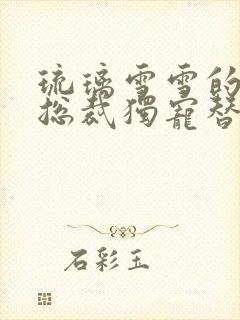 琉璃雪雪的
总裁獨寵替
石彩玉